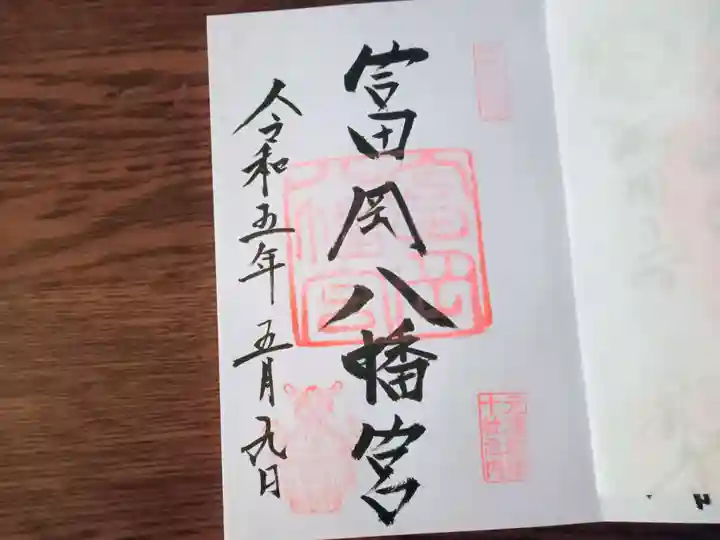 富岡八幡宮
令和五年五月九日